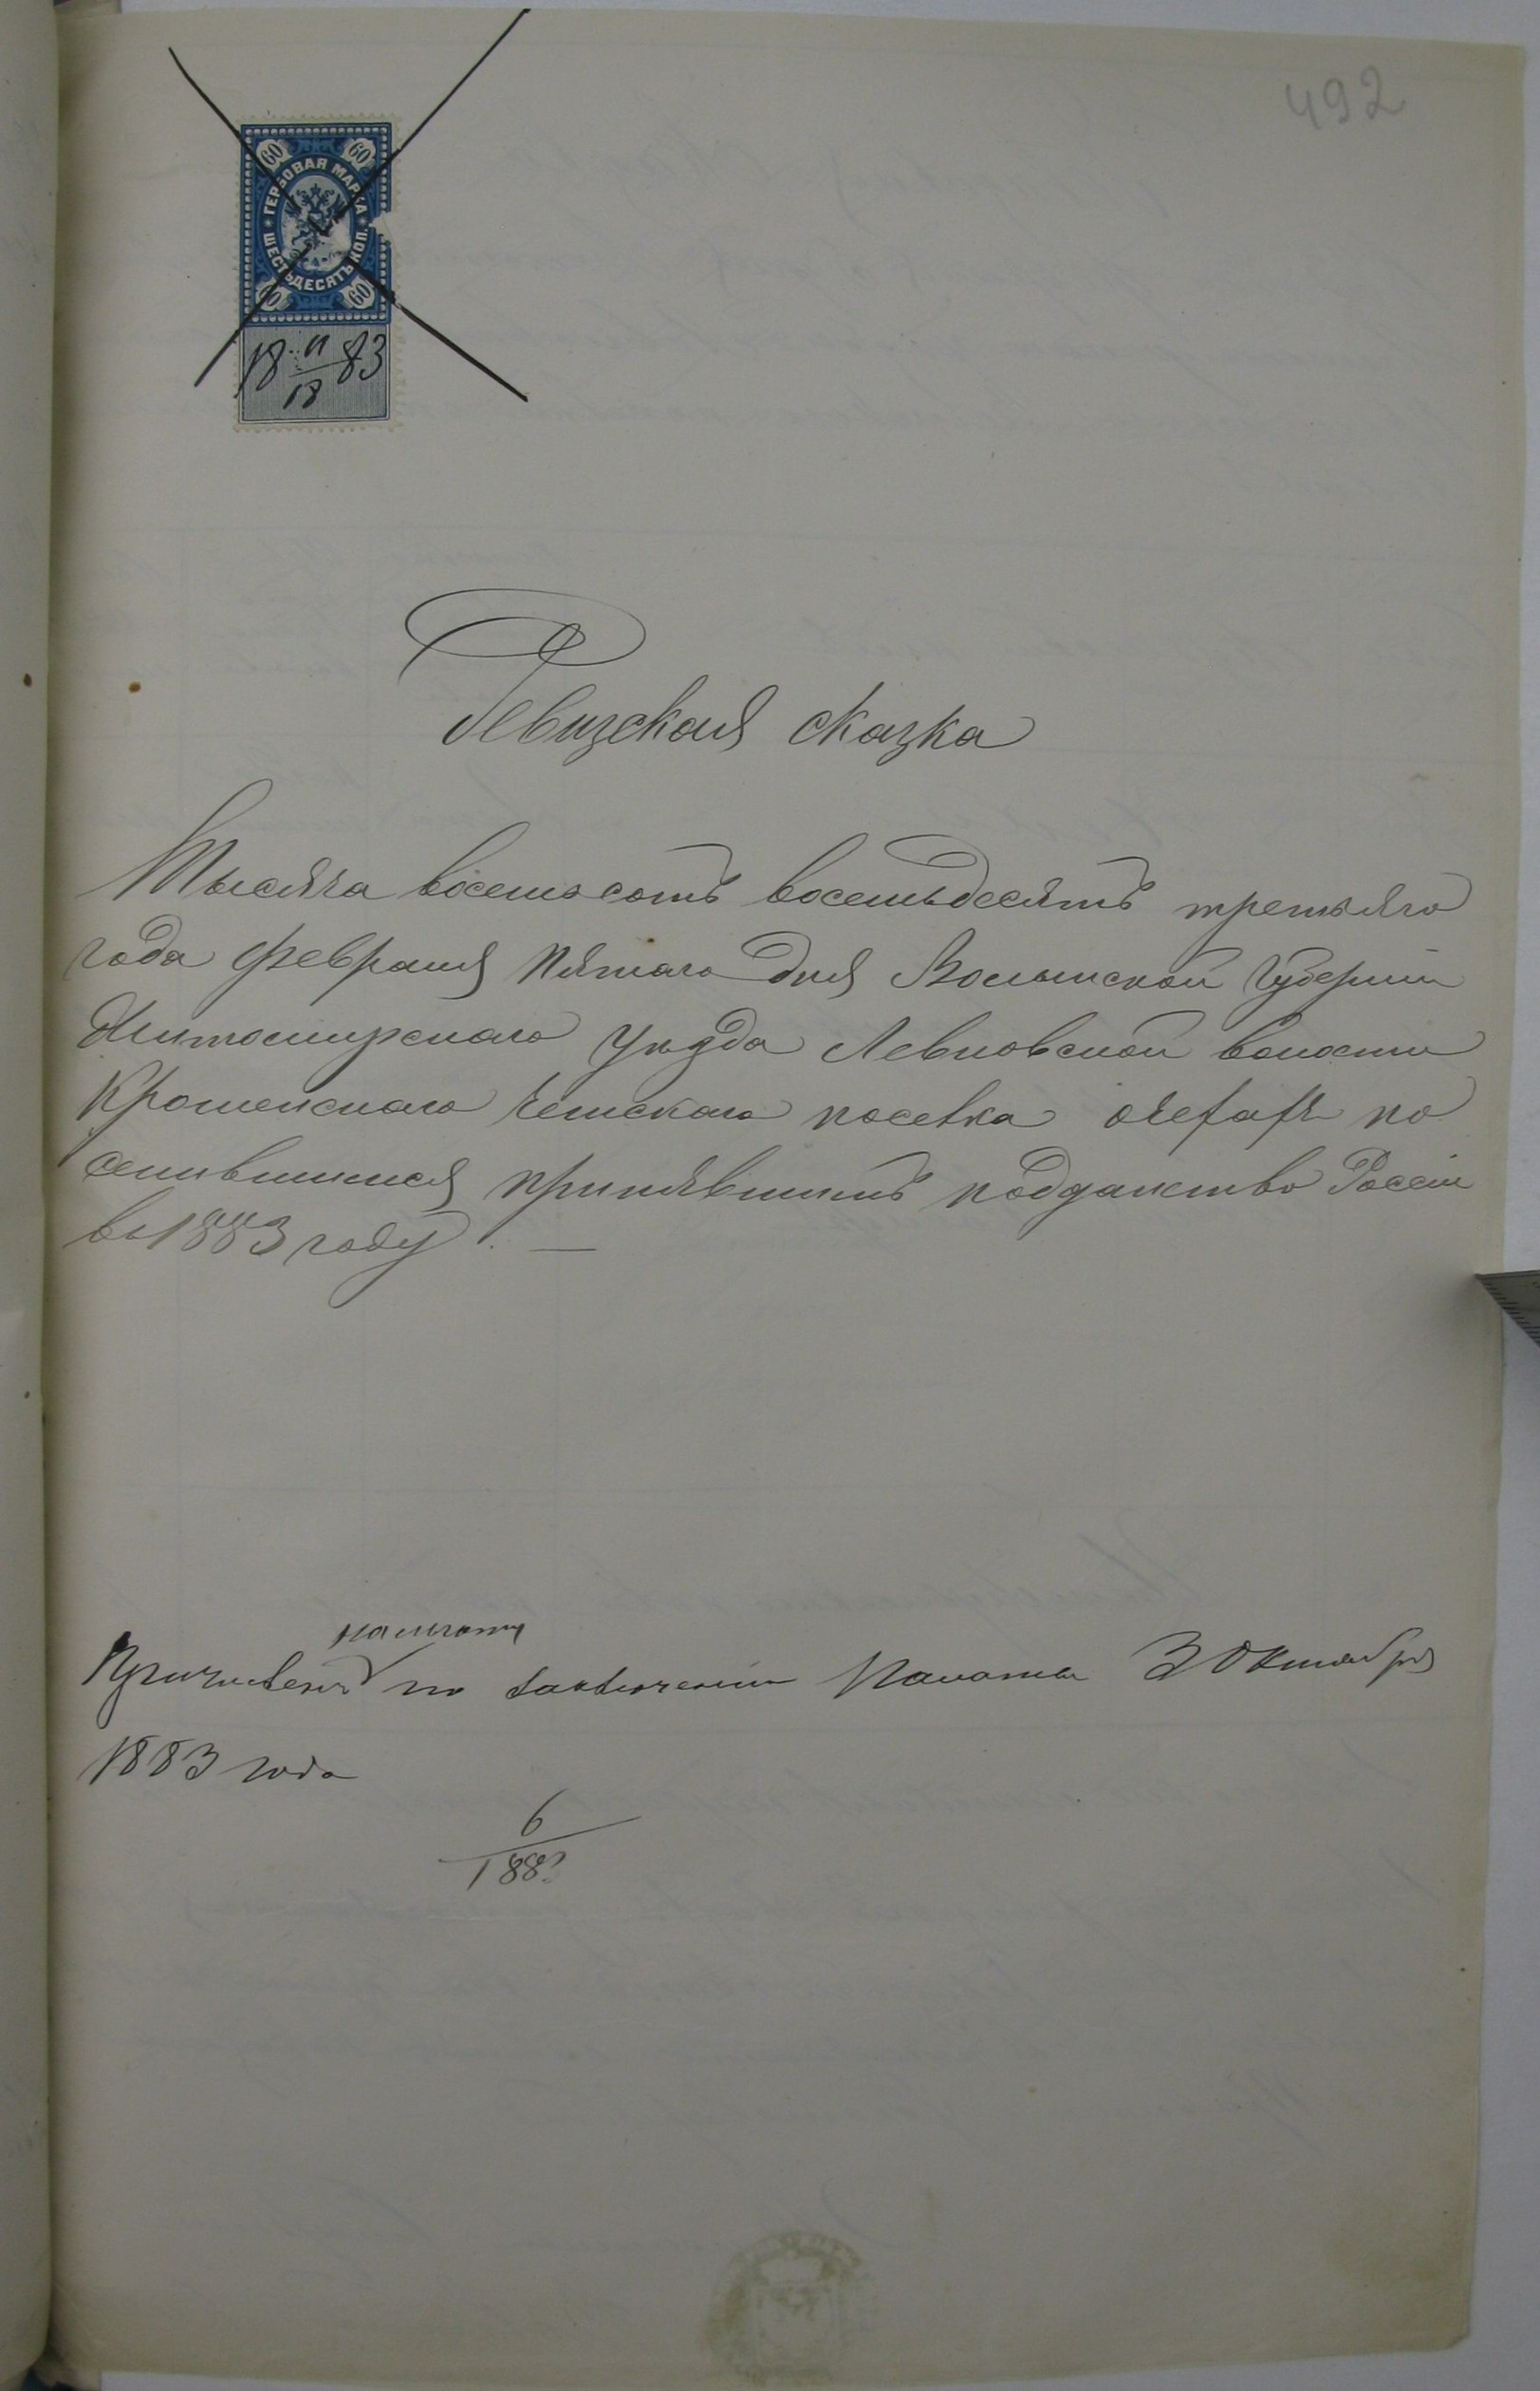 492
60 60
ГЕРБОВАЯ МАРКА
ШЕСТЬДЕСЯТЪ КОП.
60 60
18 II/18 83
Ревизская сказка
Тысяча восемьсотъ восемьдесятъ третьяго
года февраля пятаго дня Волынской губерніи
Житомирскаго уѣзда Левковской волости
Крошенскаго чешскаго поселка о чехахъ по
селившимся принявшимъ подданство Россіи
въ 1883 году. —
Причислены по заключенію Палаты 3 Октября
1883 года
6
188